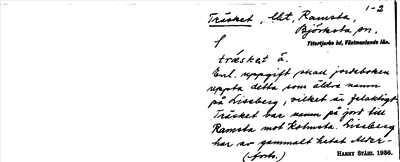 1-2
Träsket, Ukt, Ramsta,
Björksta sn,
Yttertjurbo hd, Västmanlands län.
f
träskət ä.
Enl. uppgift skall jordeboken
uppta detta som äldre namn
på Lisseberg, vilket är felaktigt.
Träsket var namn på jord till
Ramsta mot Kolmsta. Lisseberg
har av gammalt hetat Alder-
(forts.) HARRY STÅHL 1936.